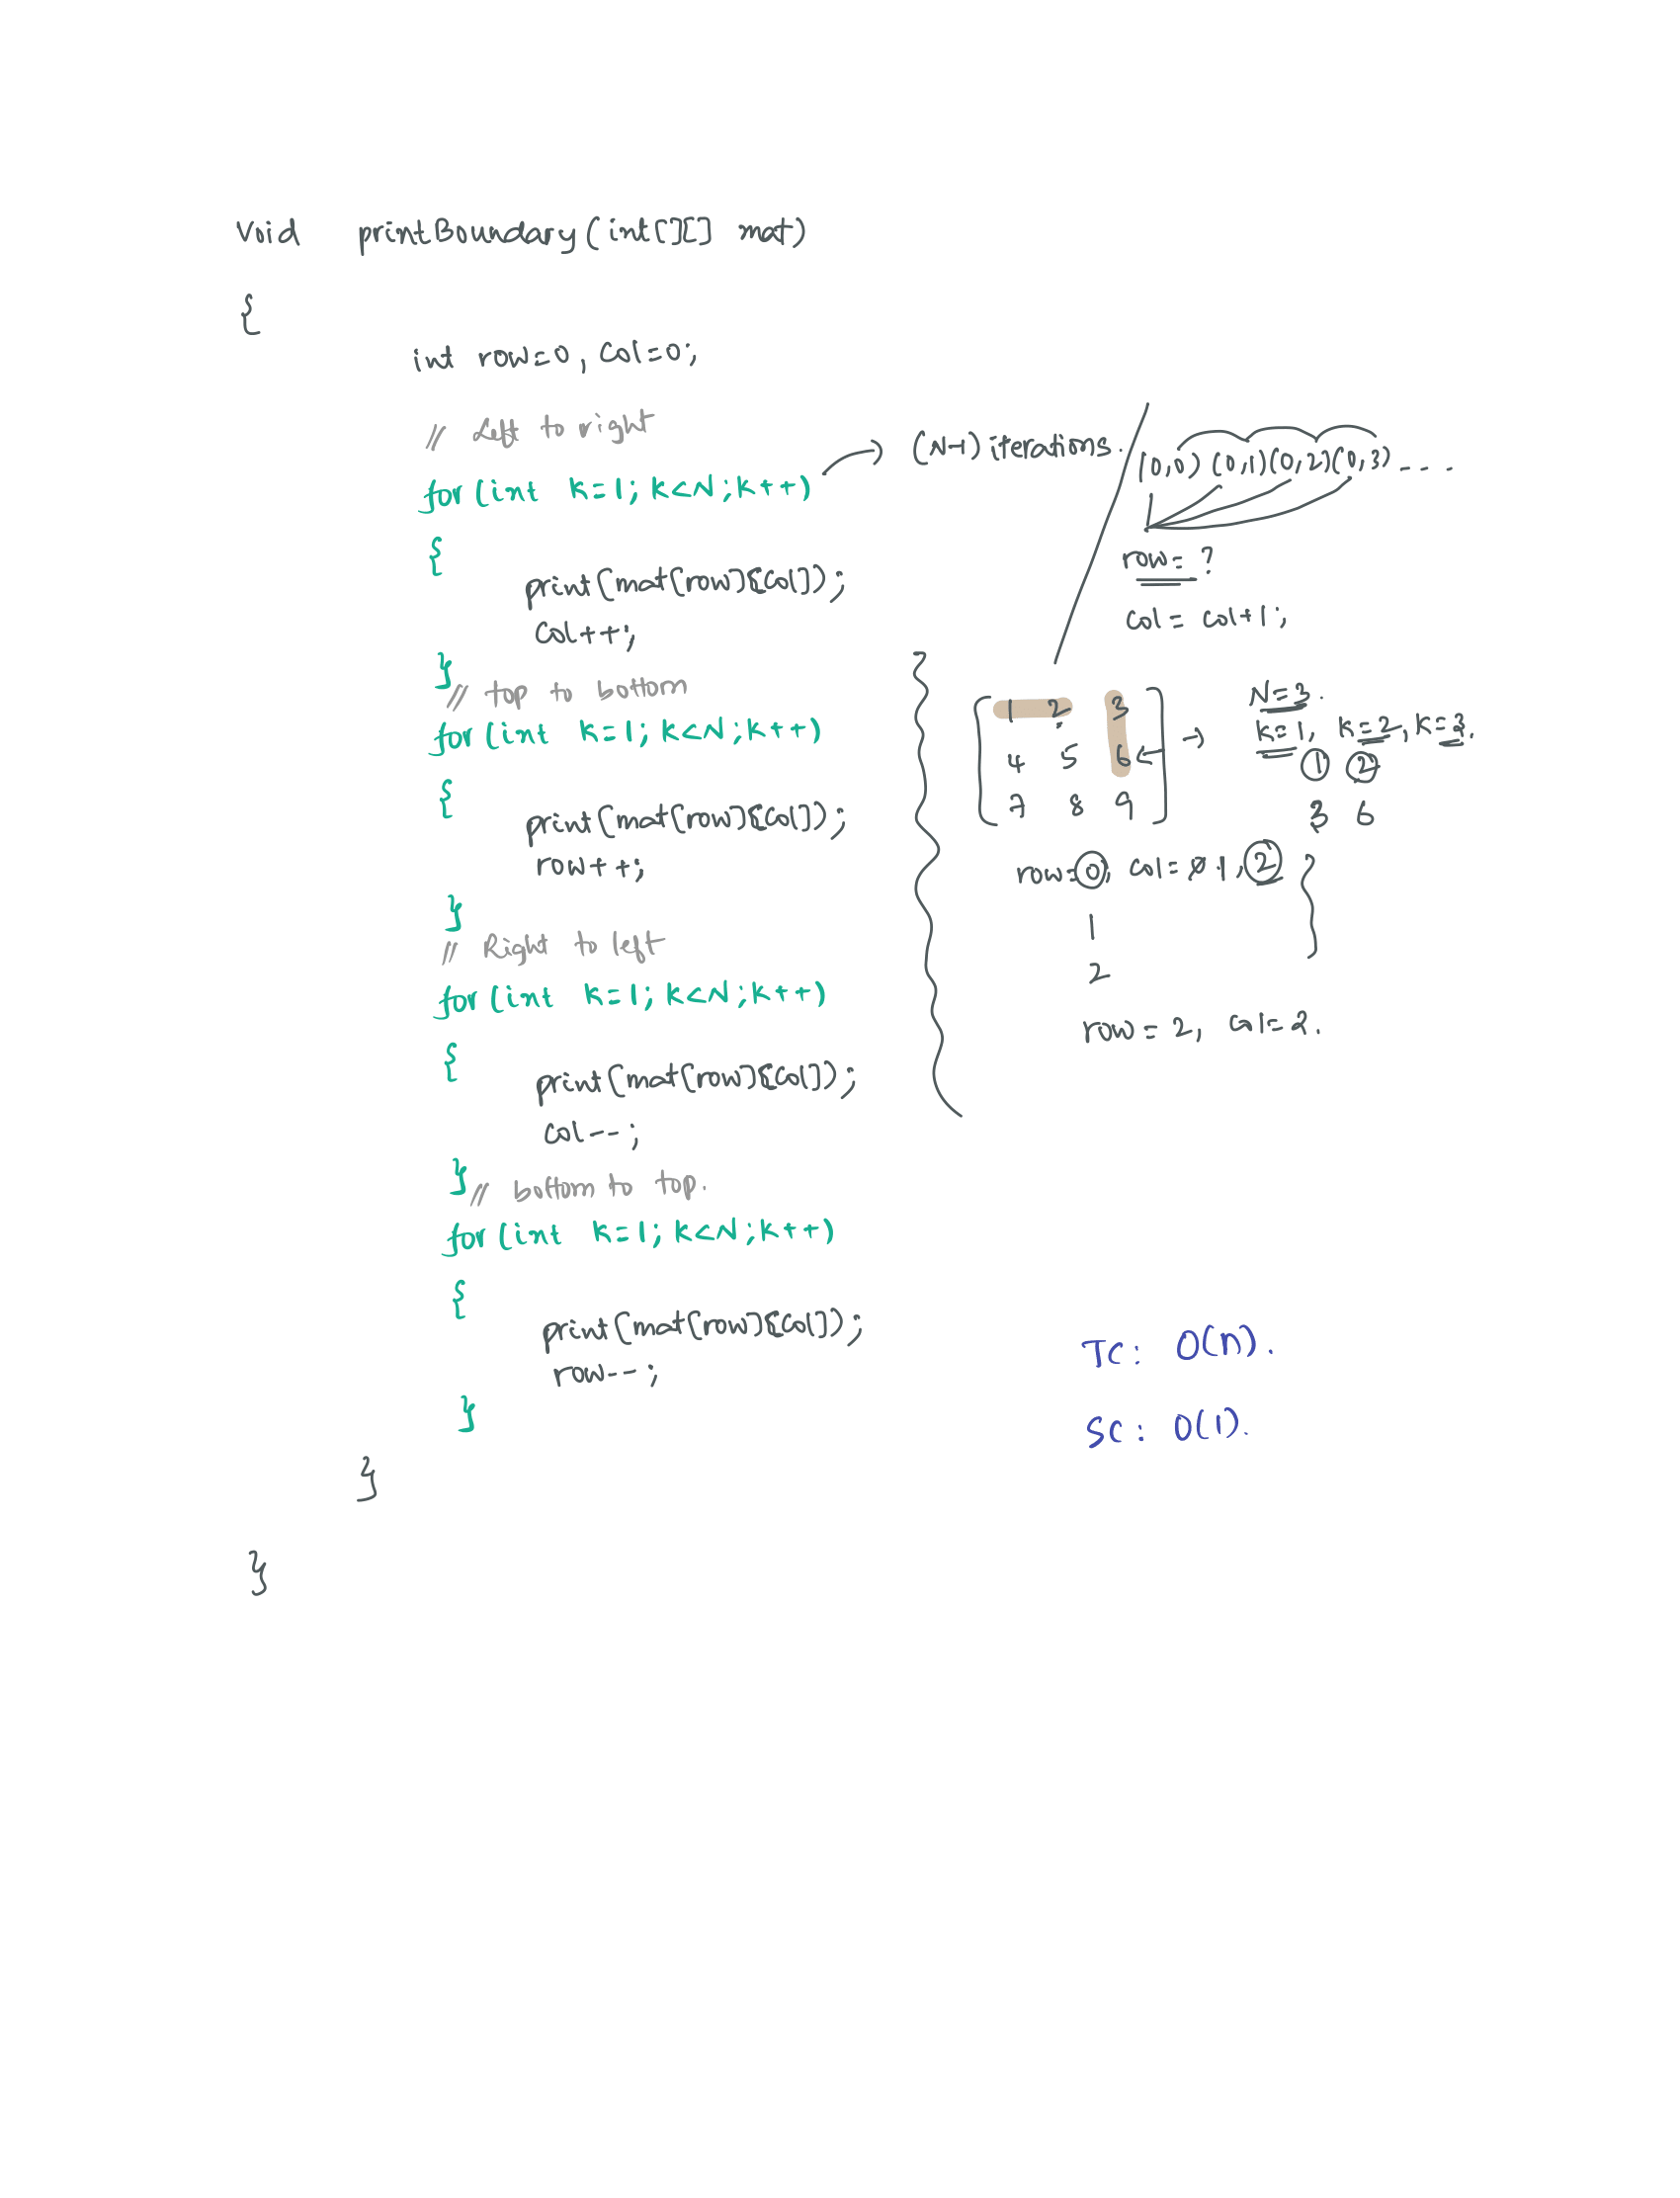 Void printBoundary(int[][] mat)
{
int row=0, col=0;
// Left to right
for(int k=1; k<N; k++)
{
print(mat[row][col]);
col++;
}
// top to bottom
for(int k=1; k<N; k++)
{
print(mat[row][col]);
row++;
}
// Right to left
for(int k=1; k<N; k++)
{
print(mat[row][col]);
col--;
}
// bottom to top.
for(int k=1; k<N; k++)
{
print(mat[row][col]);
row--;
}
}
}
(N-1) iterations.
(0,0) (0,1) (0,2) (0,3) ....
row= ?
col= col+1;
1 2 3
4 5 6
7 8 9
N=3.
k=1, k=2, k=3.
1 2
3 6
row=0, col=0 1, 2
1
2
row=2, col=2.
TC: O(n).
SC: O(1).